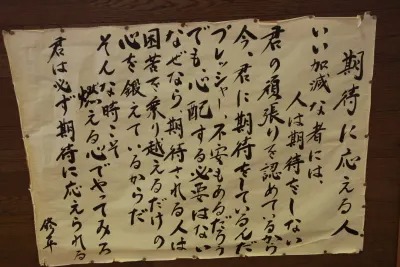 期待に応える人
いい加減な者には、
人は期待をしない
君の頑張りを認めているから
今、君に期待をしているんだ
プレッシャー 不安もあるだろう
でも、心配する必要はない
なぜなら、期待される人は
困苦を乗り越えるだけの
心を鍛えているからだ
そんな時こそ
燃える心でやってみろ
君は必ず期待に応えられる